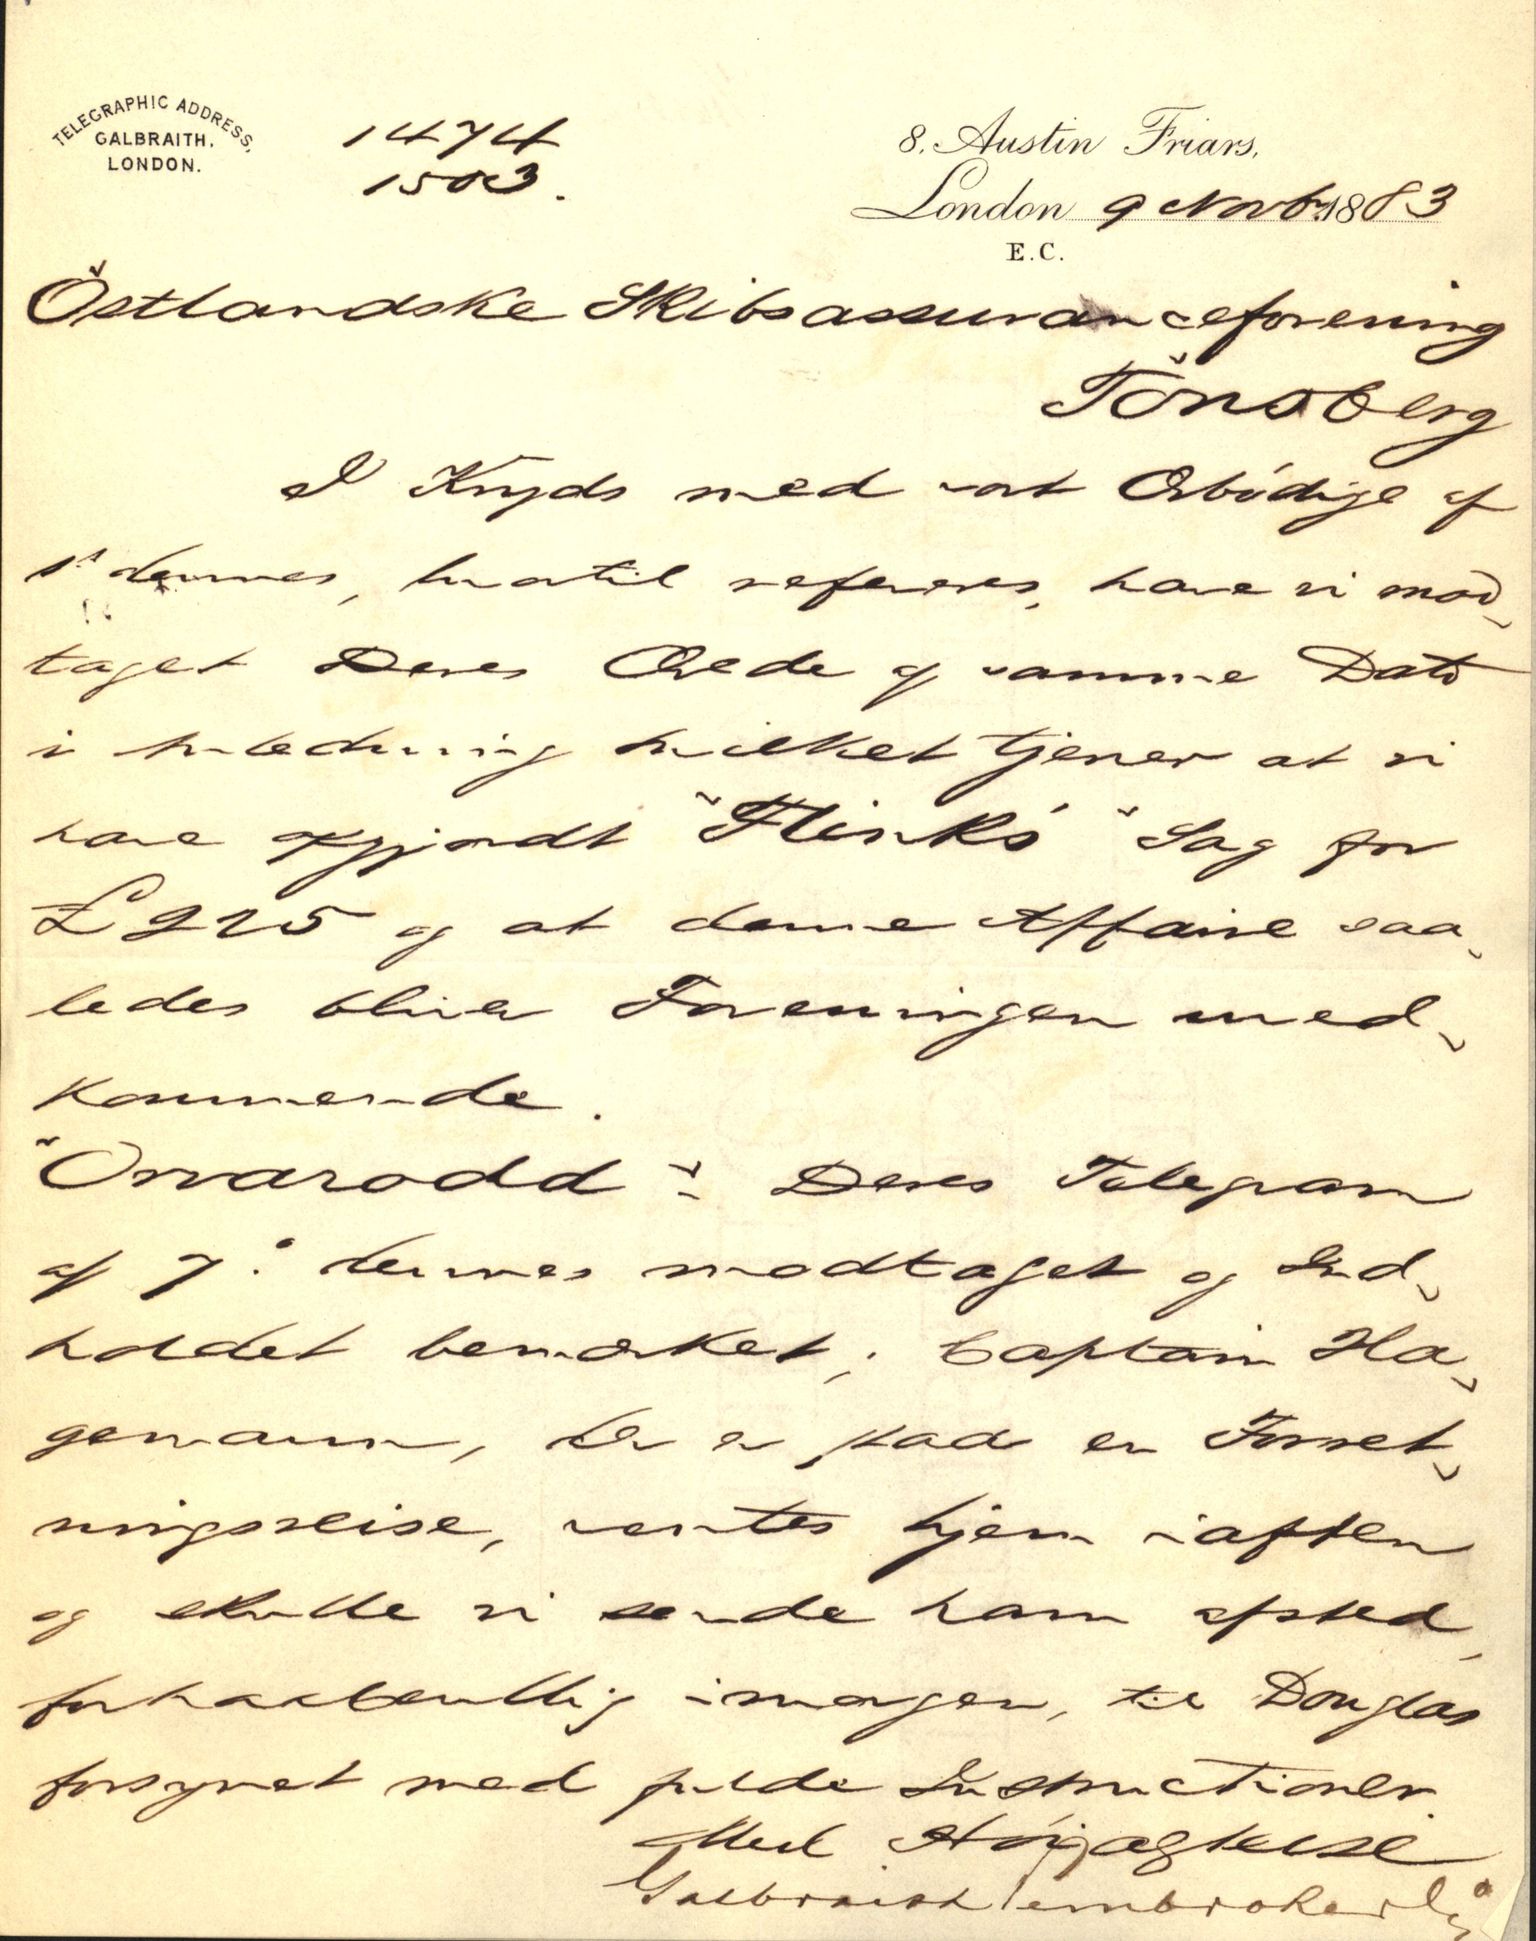 TELEGRAPHIC ADDRESS,
GALBRAITH.
LONDON.
1474
1503.
8. Austin Friars,
London 9 Novbr 1883
E.C.
Östlandske Skibsassuranceforening
Tönsberg
I Kryds med vort Ærbödige af
1st dennes, hvortil refereres, have vi mod¬
taget Deres Ærede af samme Dato
i Anledning hvilket tjener at vi
have opgjordt "Flink's" Sag for
£225 og at denne Affaire saa¬
ledes bliver Foreningen med¬
kommende.
"Orvarodd": Deres Telegram
af 7: dennes modtaget og Ind¬
holdet bemærket; Captain Ha¬
gemann, der er paa en Forret¬
ningsreise, ventes hjem iaften
og skulle vi sende ham afsted,
forhaabentlig imorgen, til Douglas
forsynet med fulde Instructioner.
Med Höjagtelse
Galbraith Pembroke & Co